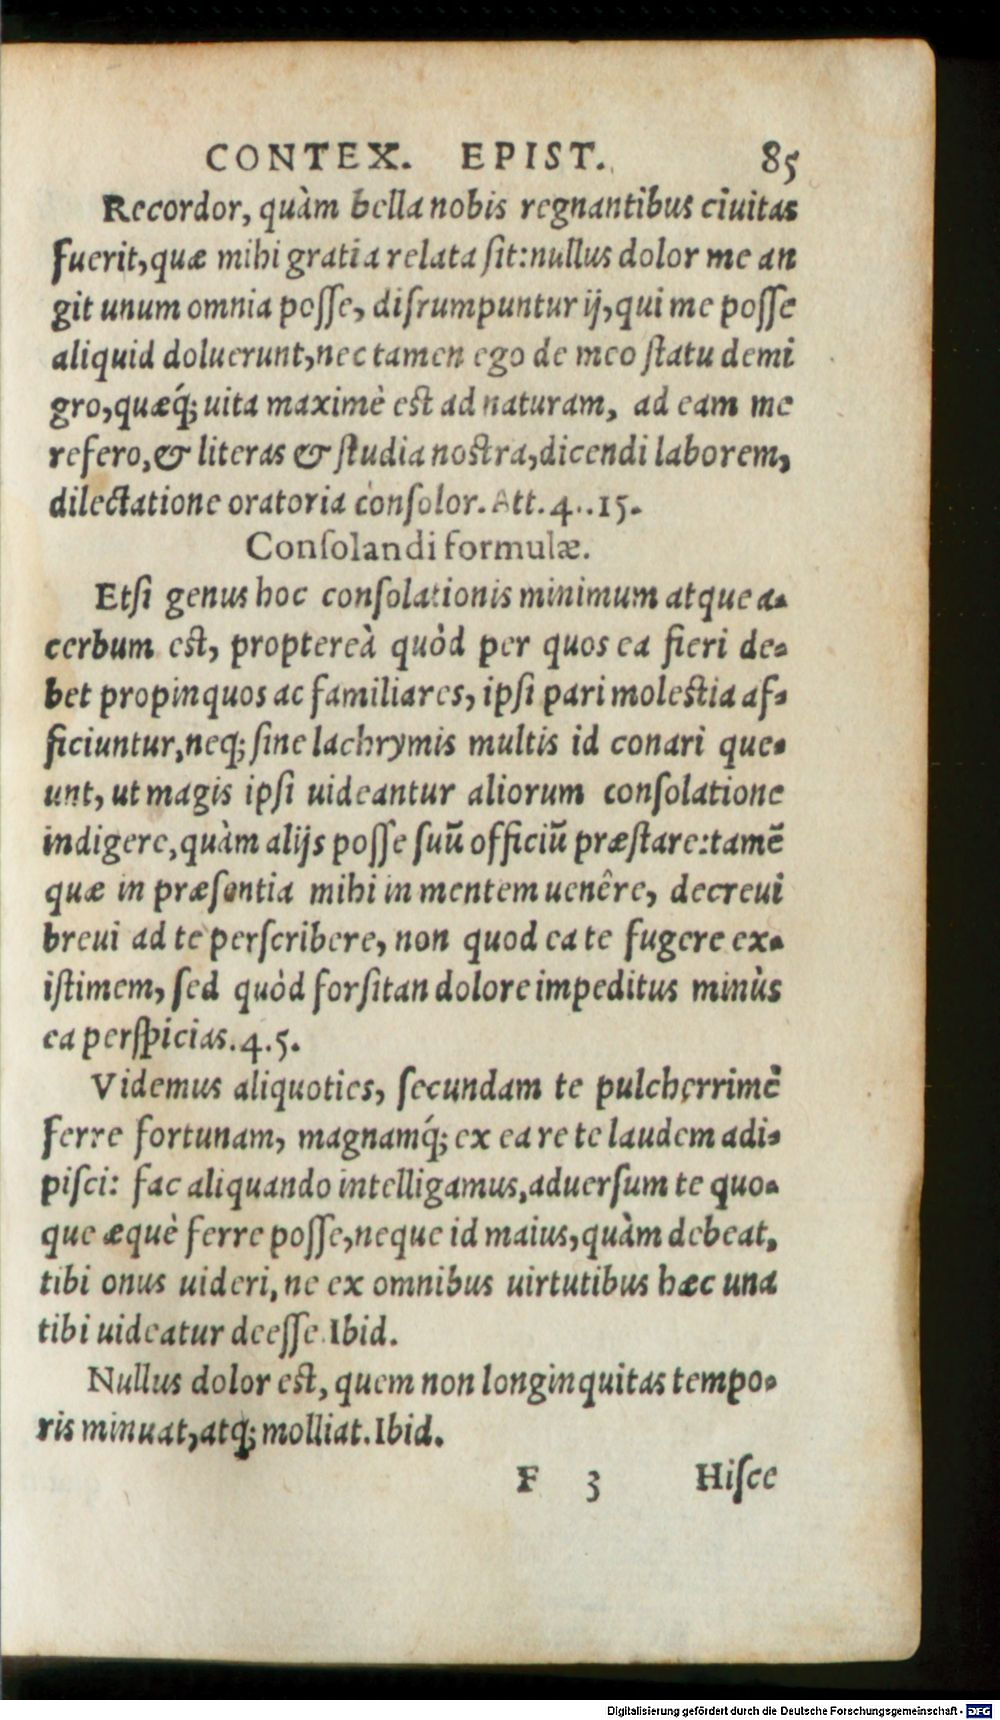 CONTEX. EPIST. 85
Recordor, quàm bella nobis regnantibus ciuitas
fuerit, quæ mihi gratia relata ſit: nullus dolor me an
git unum omnia poſſe, diſrumpuntur ij, qui me poſſe
aliquid doluerunt, nec tamen ego de meo ſtatu demi
gro, quæq́; uita maximè est ad naturam, ad eam me
refero, & literas & ſtudia nostra, dicendi laborem,
dilectatione oratoria conſolor. Att. 4..15.
Conſolandi formulæ.
Etſi genus hoc conſolationis minimum atque a-
cerbum est, proptereà quòd per quos ea fieri de-
bet propinquos ac familiares, ipſi pari molestia af-
ficiuntur, neq; ſine lachrymis multis id conari que-
unt, ut magis ipſi uideantur aliorum conſolatione
indigere, quàm alijs poſſe ſuū officiū præſtare: tamē
quæ in præſentia mihi in mentem uenêre, decreui
breui ad te perſcribere, non quod ea te fugere ex-
iſtimem, ſed quòd forſitan dolore impeditus minùs
ea perſpicias. 4.5.
Videmus aliquoties, ſecundam te pulcherrimè
ferre fortunam, magnamq́; ex ea re te laudem adi-
piſci: fac aliquando intelligamus, aduerſum te quo-
que æquè ferre poſſe, neque id maius, quàm debeat,
tibi onus uideri, ne ex omnibus uirtutibus hæc una
tibi uideatur deeſſe. Ibid.
Nullus dolor est, quem non longinquitas tempo-
ris minuat, atq; molliat. Ibid.
F 3 Hiſce
Digitalisierung gefördert durch die Deutsche Forschungsgemeinschaft - DFG